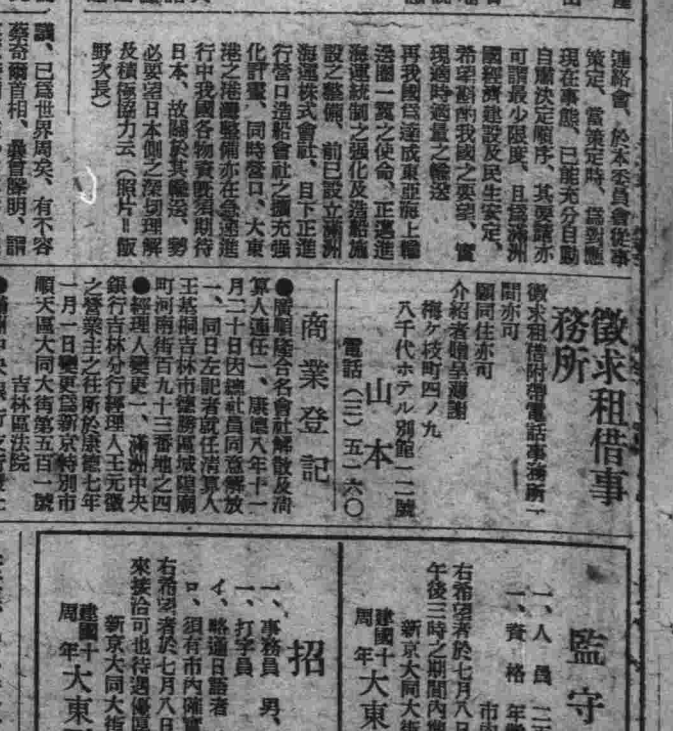 連絡會、於本委員會從事
策定、當策定時、爲對應
現在事態、已能充分自動
自肅決定順序、其要請亦
可謂最少限度、且爲滿洲
國經濟建設及民生安定、
希望斟酌我國之要望、實
現適時適量之輸送
再我國爲達成東亞海上輸
送圈一翼之使命、正邁進
海運統制之强化及造船施
設之整備、前已設立滿洲
海運株式會社、目下正進
行營口造船會社之擴充强
化計畫、同時營口、大東
港之港灣整備亦在急速進
行中我國各物資旣須期待
日本、故關於其輸送、勢
必要望日本側之深切理解
及積極協力云（照片＝飯
野次長）
議、已爲世界周矣、有不容
徵求租借事
務所
徵求租借附帶電話事務所一
間亦可
願同住亦可
介紹者贈呈薄謝
梅ケ枝町四ノ九
八千代ホテル別館一二號
山本
電話（三）五一六〇
商業登記
●廣順隆合名會社解散及淸
算人選任一、康德八年十一
月二十日因總社員同意解散
一、同日左記者就任淸算人
王基桐吉林市德勝區城隍廟
町河南街百九十三番地之四
●經理人變更一、滿洲中央
銀行吉林分行經理人王元徵
之營業主之住所於康德七年
一月一日變更爲新京特別市
順天區大同大街第五百一號
吉林區法院
監守
一、人員
一、資格 年齡
市內
右希望者於七月八日
午後三時之期間內
新京大同大街
建國十
周年
大東
招
一、事務員 男、
一、打字員
イ、略通日語者
ロ、須有市內確實
右希望者於七月八日
來接洽可也待遇優
新京大同大街
建國十
周年
大東